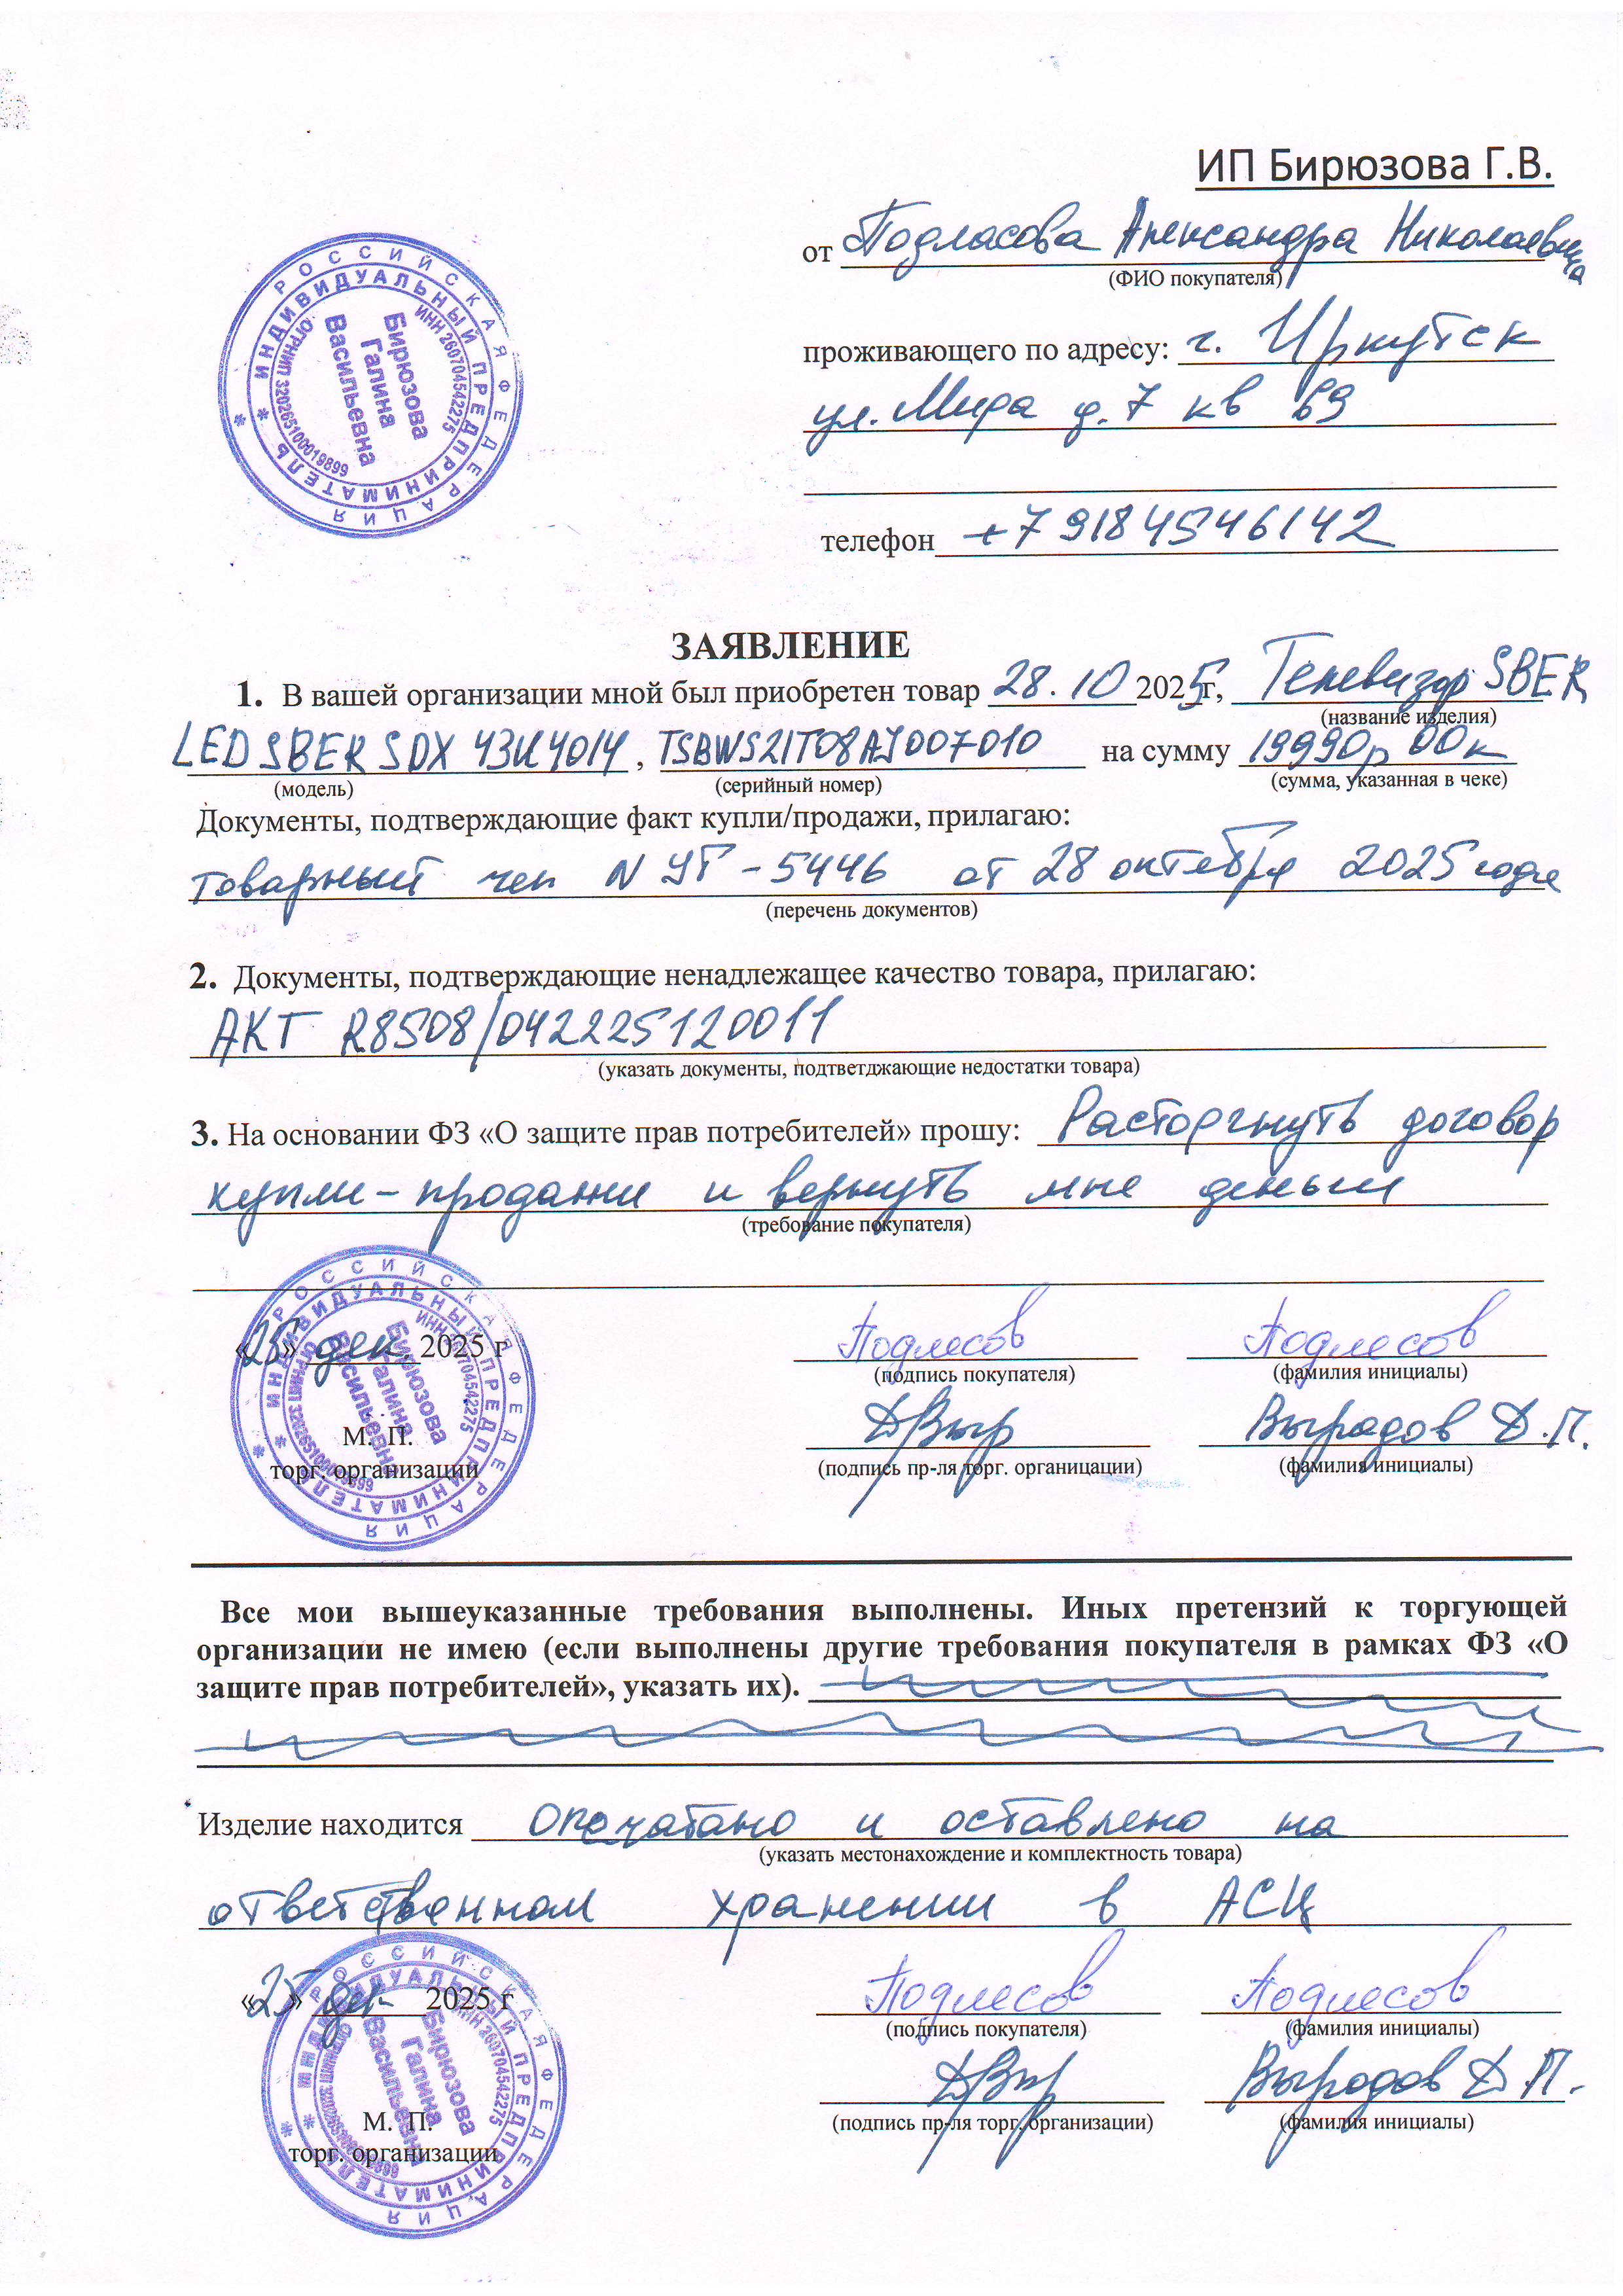 ИП Бирюзова Г.В.
от Подласова Александра Николаевича
(ФИО покупателя)
проживающего по адресу: г. Иркутск
ул. Мира д. 7 кв 69
телефон +7 918 4546142
РОССИЙСКАЯ ФЕДЕРАЦИЯ
* ИНДИВИДУАЛЬНЫЙ ПРЕДПРИНИМАТЕЛЬ *
ИНН 260704542275
Бирюзова
Галина
Васильевна
ОГРНИП 320265100019899
ЗАЯВЛЕНИЕ
1. В вашей организации мной был приобретен товар 28.10 2025 г, Телевизор SBER
(название изделия)
LED SBER SDX 43U4014, TSBWS21T08AJ007010 на сумму 19990р 00к
(модель) (серийный номер) (сумма, указанная в чеке)
Документы, подтверждающие факт купли/продажи, прилагаю:
товарный чек N УТ-5446 от 28 октября 2025 года
(перечень документов)
2. Документы, подтверждающие ненадлежащее качество товара, прилагаю:
АКТ R8508/042225120011
(указать документы, подтветджающие недостатки товара)
3. На основании ФЗ «О защите прав потребителей» прошу: Расторгнуть договор
купли-продажи и вернуть мне деньги
(требование покупателя)
«25» дек 2025 г Подласов Подласов
(подпись покупателя) (фамилия инициалы)
ДВыр Выродов Д.П.
М. П.
торг. организации (подпись пр-ля торг. органицации) (фамилия инициалы)
РОССИЙСКАЯ ФЕДЕРАЦИЯ
* ИНДИВИДУАЛЬНЫЙ ПРЕДПРИНИМАТЕЛЬ *
ИНН 260704542275
Бирюзова
Галина
Васильевна
ОГРНИП 320265100019899
Все мои вышеуказанные требования выполнены. Иных претензий к торгующей
организации не имею (если выполнены другие требования покупателя в рамках ФЗ «О
защите прав потребителей», указать их).
Изделие находится опечатано и оставлено на
(указать местонахождение и комплектность товара)
ответственном хранении в АСЦ
«25» дек 2025 г Подласов Подласов
(подпись покупателя) (фамилия инициалы)
ДВыр Выродов Д.П.
М. П. (подпись пр-ля торг. организации) (фамилия инициалы)
торг. организации
РОССИЙСКАЯ ФЕДЕРАЦИЯ
* ИНДИВИДУАЛЬНЫЙ ПРЕДПРИНИМАТЕЛЬ *
ИНН 260704542275
Бирюзова
Галина
Васильевна
ОГРНИП 320265100019899